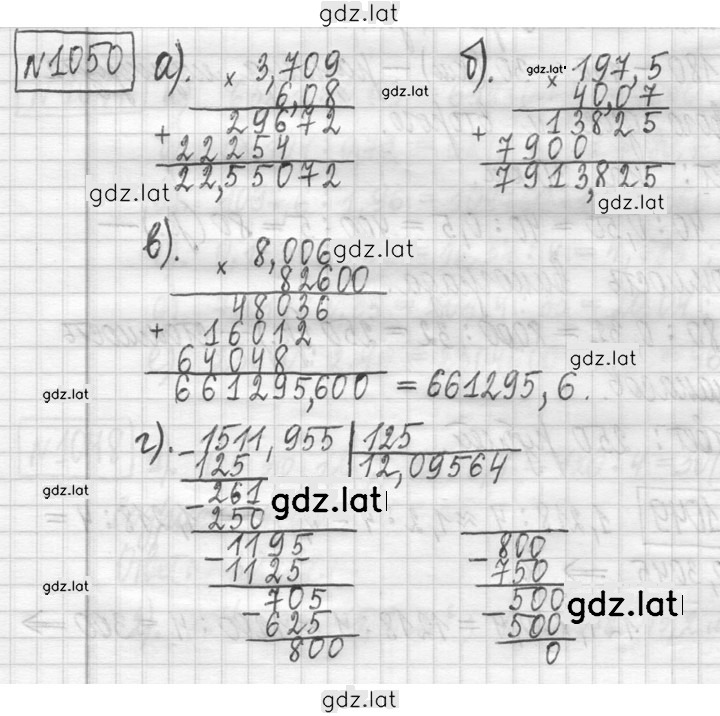 gdz.lat
№1050 а). × 3,709
6,08
+ 29672
22254
22,55072
gdz.lat
gdz.lat
б). × 197,5
gdz.lat
40,07
+ 13825
7900
7913,825
gdz.lat
в). × 8,006
gdz.lat
82600
48036
+ 16012
64048
661295,600 = 661295,6.
gdz.lat
gdz.lat
г). - 1511,955 | 125
125 12,09564
- 261
250
gdz.lat
gdz.lat
- 1195
1125
- 705
625
800
gdz.lat
- 800
750
- 500
500
0
gdz.lat
gdz.lat